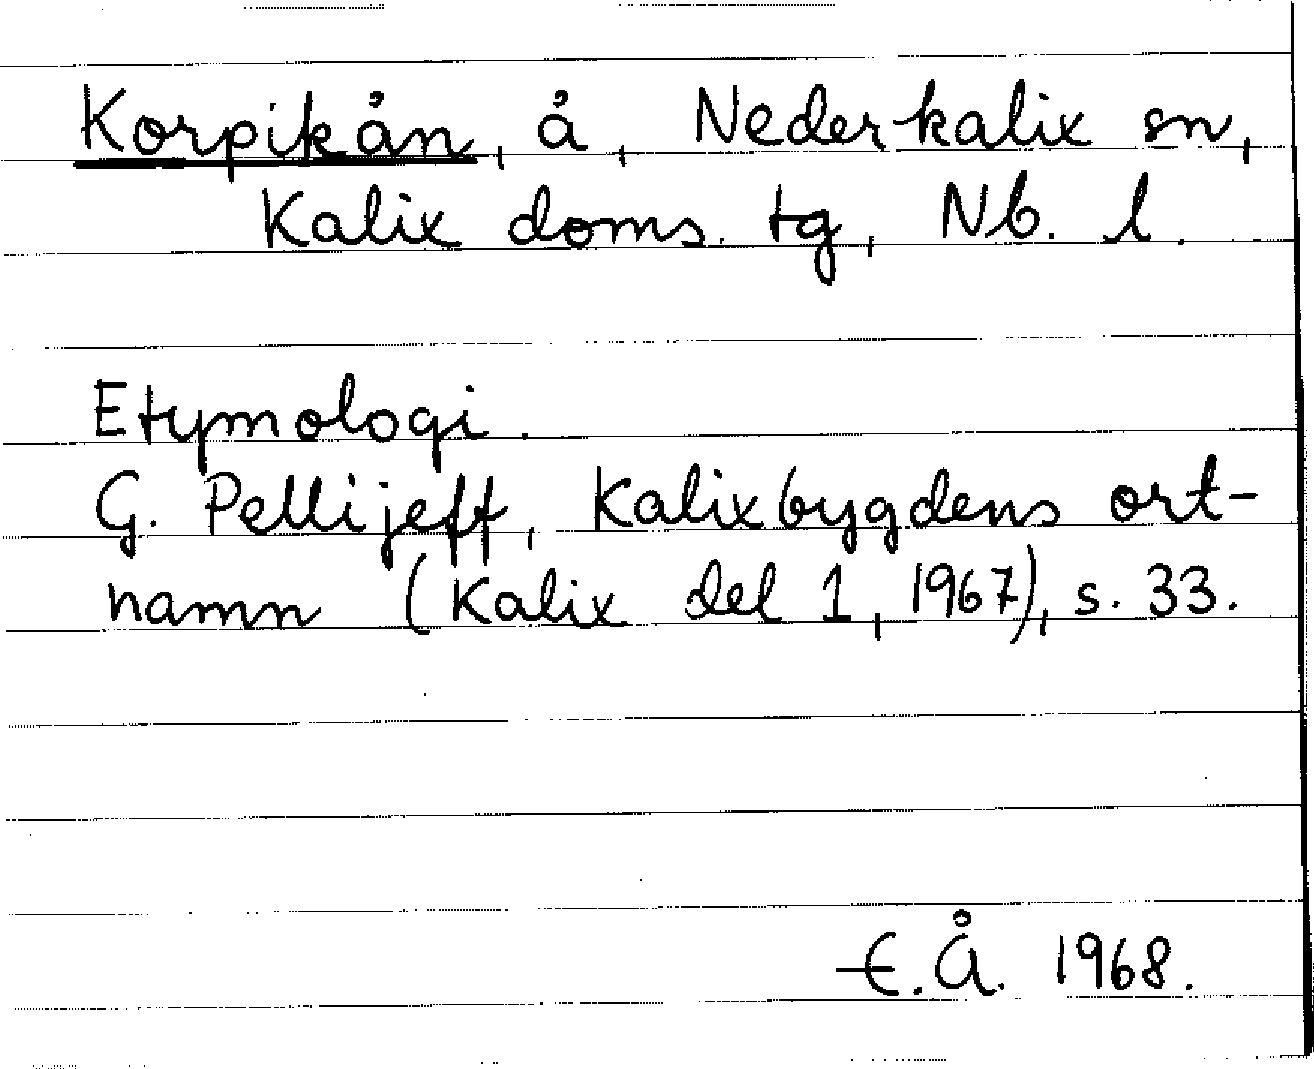 Korpikån, å, Nederkalix sn,
Kalix doms. tg, Nb. l.
Etymologi.
G. Pellijeff, Kalixbygdens ort-
namn (Kalix del 1, 1967), s. 33.
E.Å. 1968.